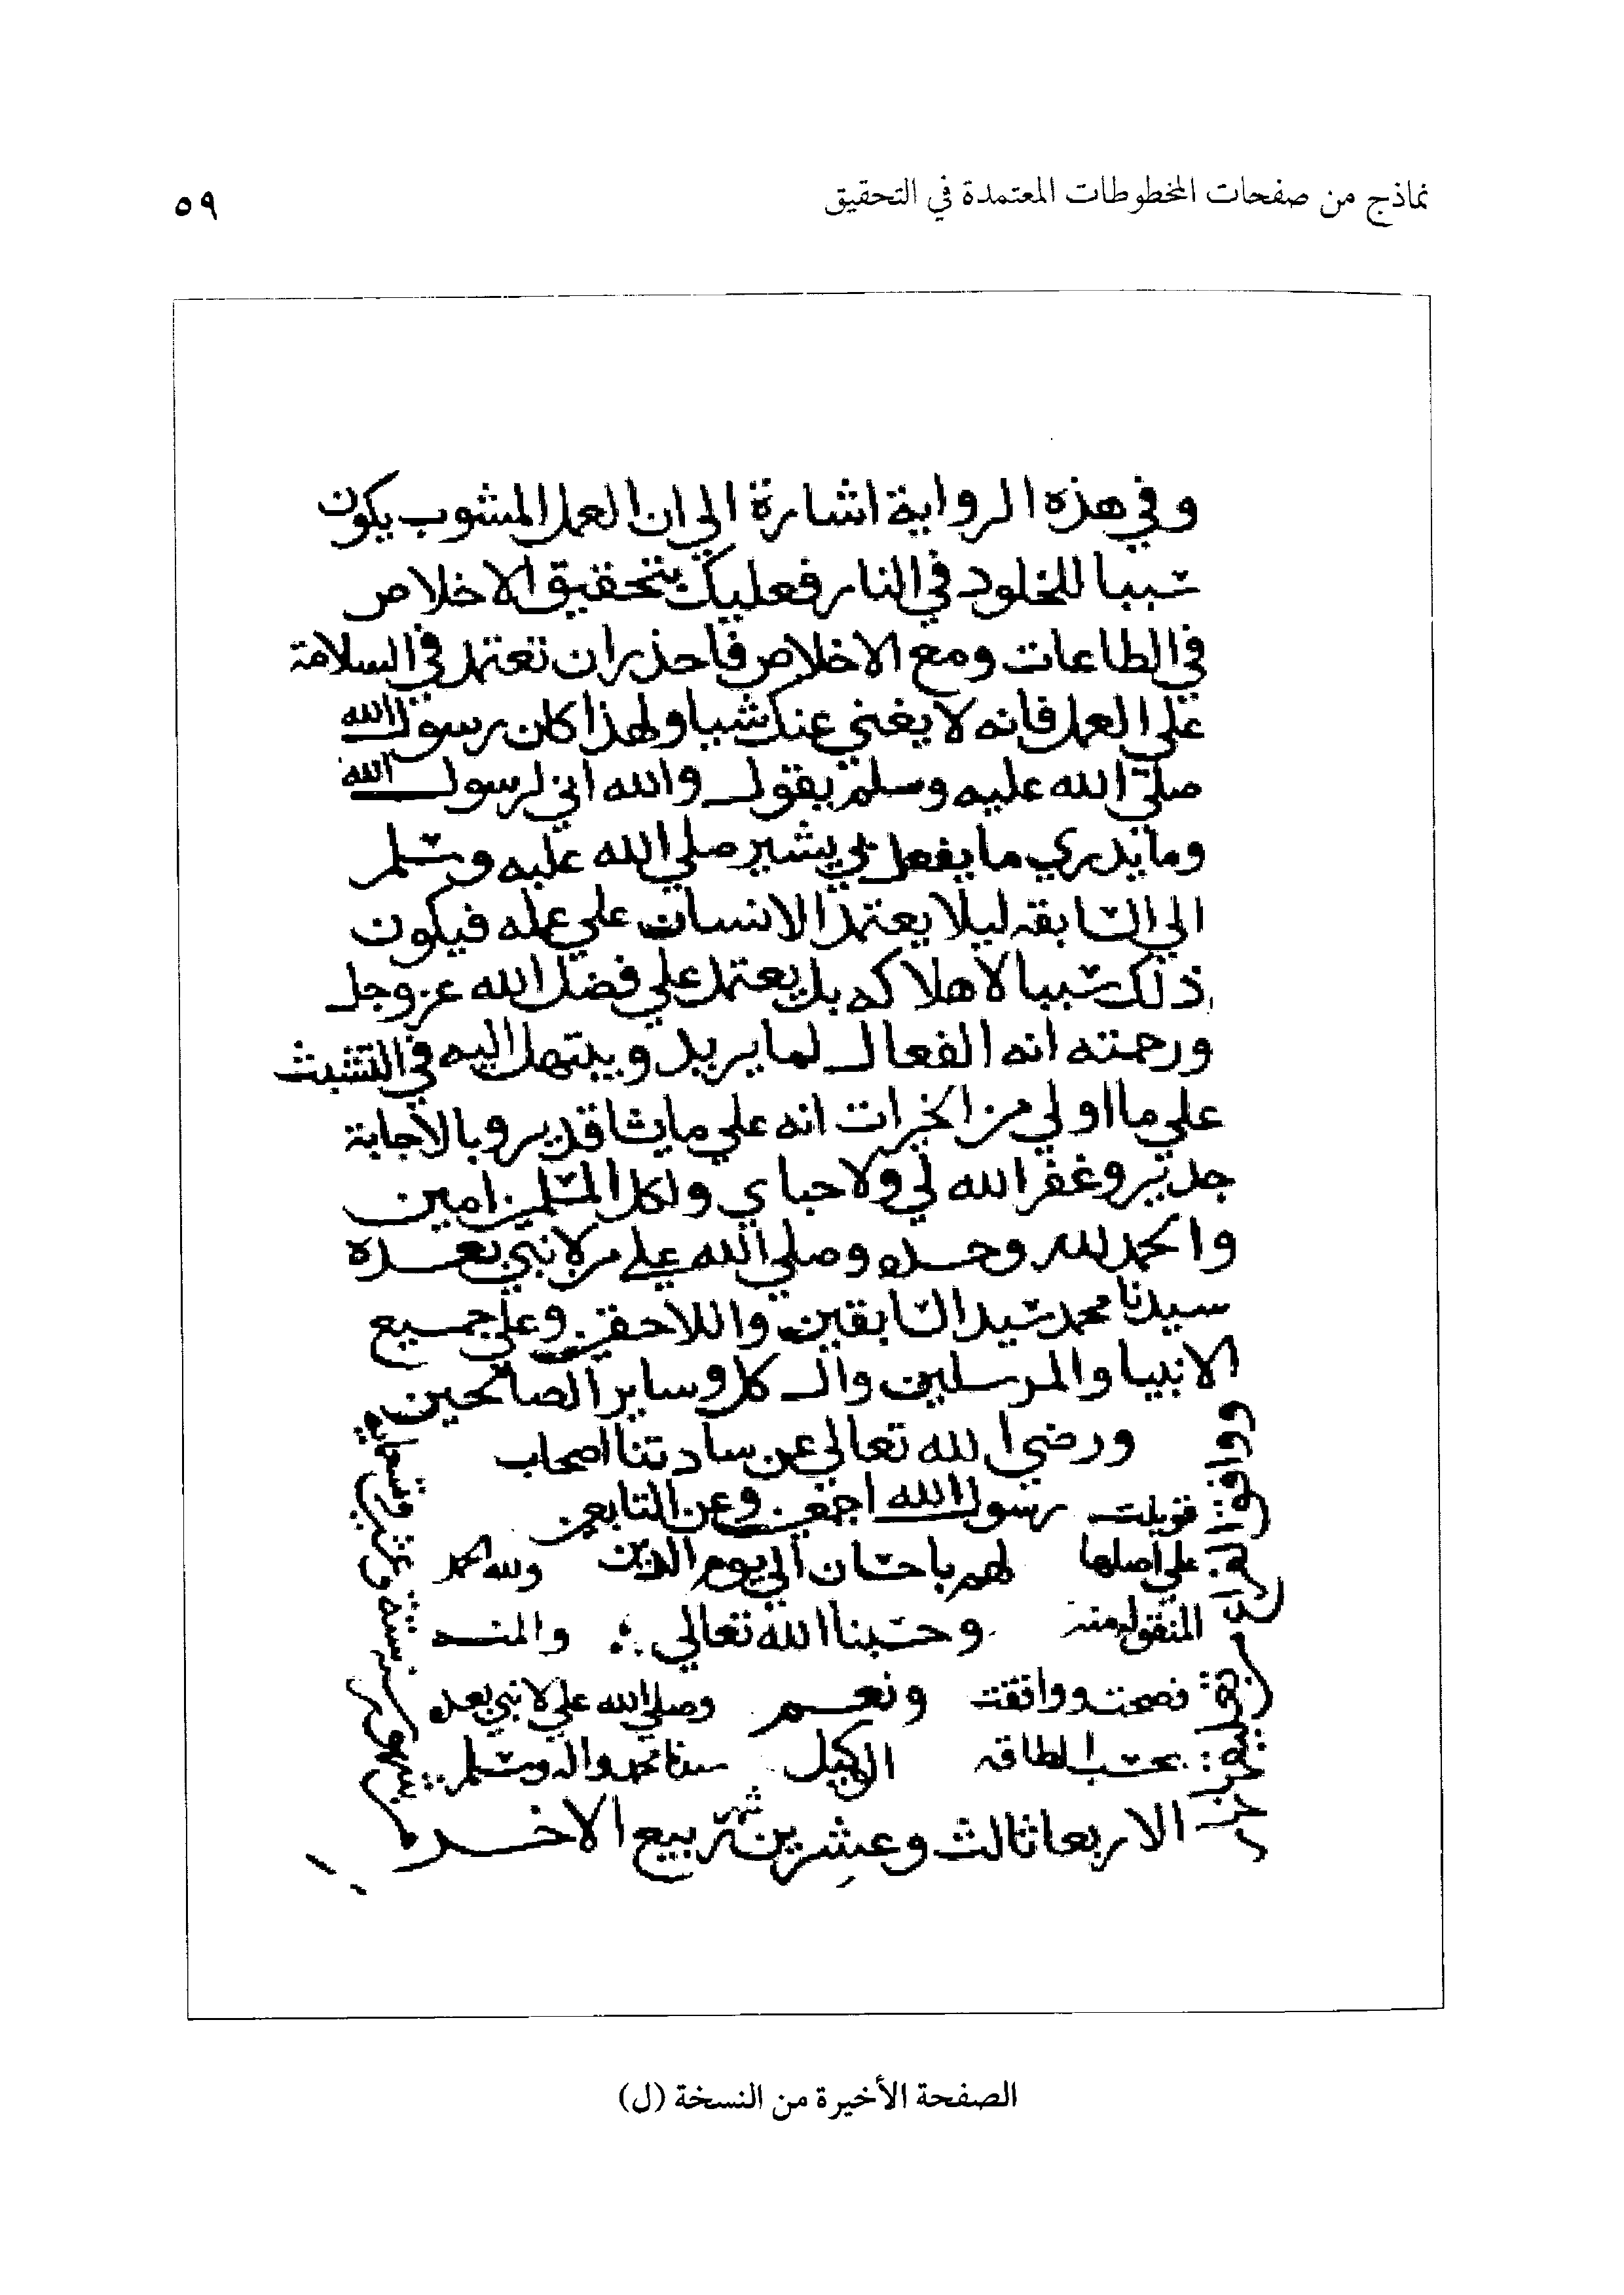 نماذج من صفحات المخطوطات المعتمدة في التحقيق
٥٩
وفي هذه الرواية اشارة الي ان العمل المشوب يكون
سببا للخلود في النار فعليك بتحقيق الاخلاص
في الطاعات ومع الاخلاص فاحذر ان تعتمد في السلامة
علي العمل فانه لا يغني عنك شيا ولهذا كان رسول الله
صلي الله عليه وسلم يقول والله اني لرسول الله
وما يدري ما يفعل بي يشير صلي الله عليه وسلم
الي السابقه ليلا يعتمد الانسان علي عمله فيكون
ذلك سببا لاهلاكه بل يعتمد علي فضل الله عز وجل
ورحمته انه الفعال لما يريد ويبتهل اليه في التثبث
علي ما اولي من الخيرات انه علي ما يشا قدير وبالاجابة
جدير وغفر الله لي ولاحباي ولكل المسلمين امين
والحمد لله وحده وصلي الله علي من لا نبي بعده
سيدنا محمد سيد السابقين واللاحقين وعلي جميع
الانبيا والمرسلين وال كل وساير الصالحين
ورضي الله تعالي عن ساداتنا اصحاب
رسول الله اجمعين وعن التابعين
لهم باحسان الي يوم الدين
وحسبنا الله تعالي
ونعم
الوكيل
قوبلت
علي اصلها
المنقوله منه
فصحت ووافقت
بحسب الطاقه
ولله الحمد
والمنه
وصلي الله علي لا نبي بعده
سيدنا محمد واله وسلم
ووافق الفراغ
الاربعا ثالث وعشرين شهر ربيع الاخر
الصفحة الأخيرة من النسخة (ل)